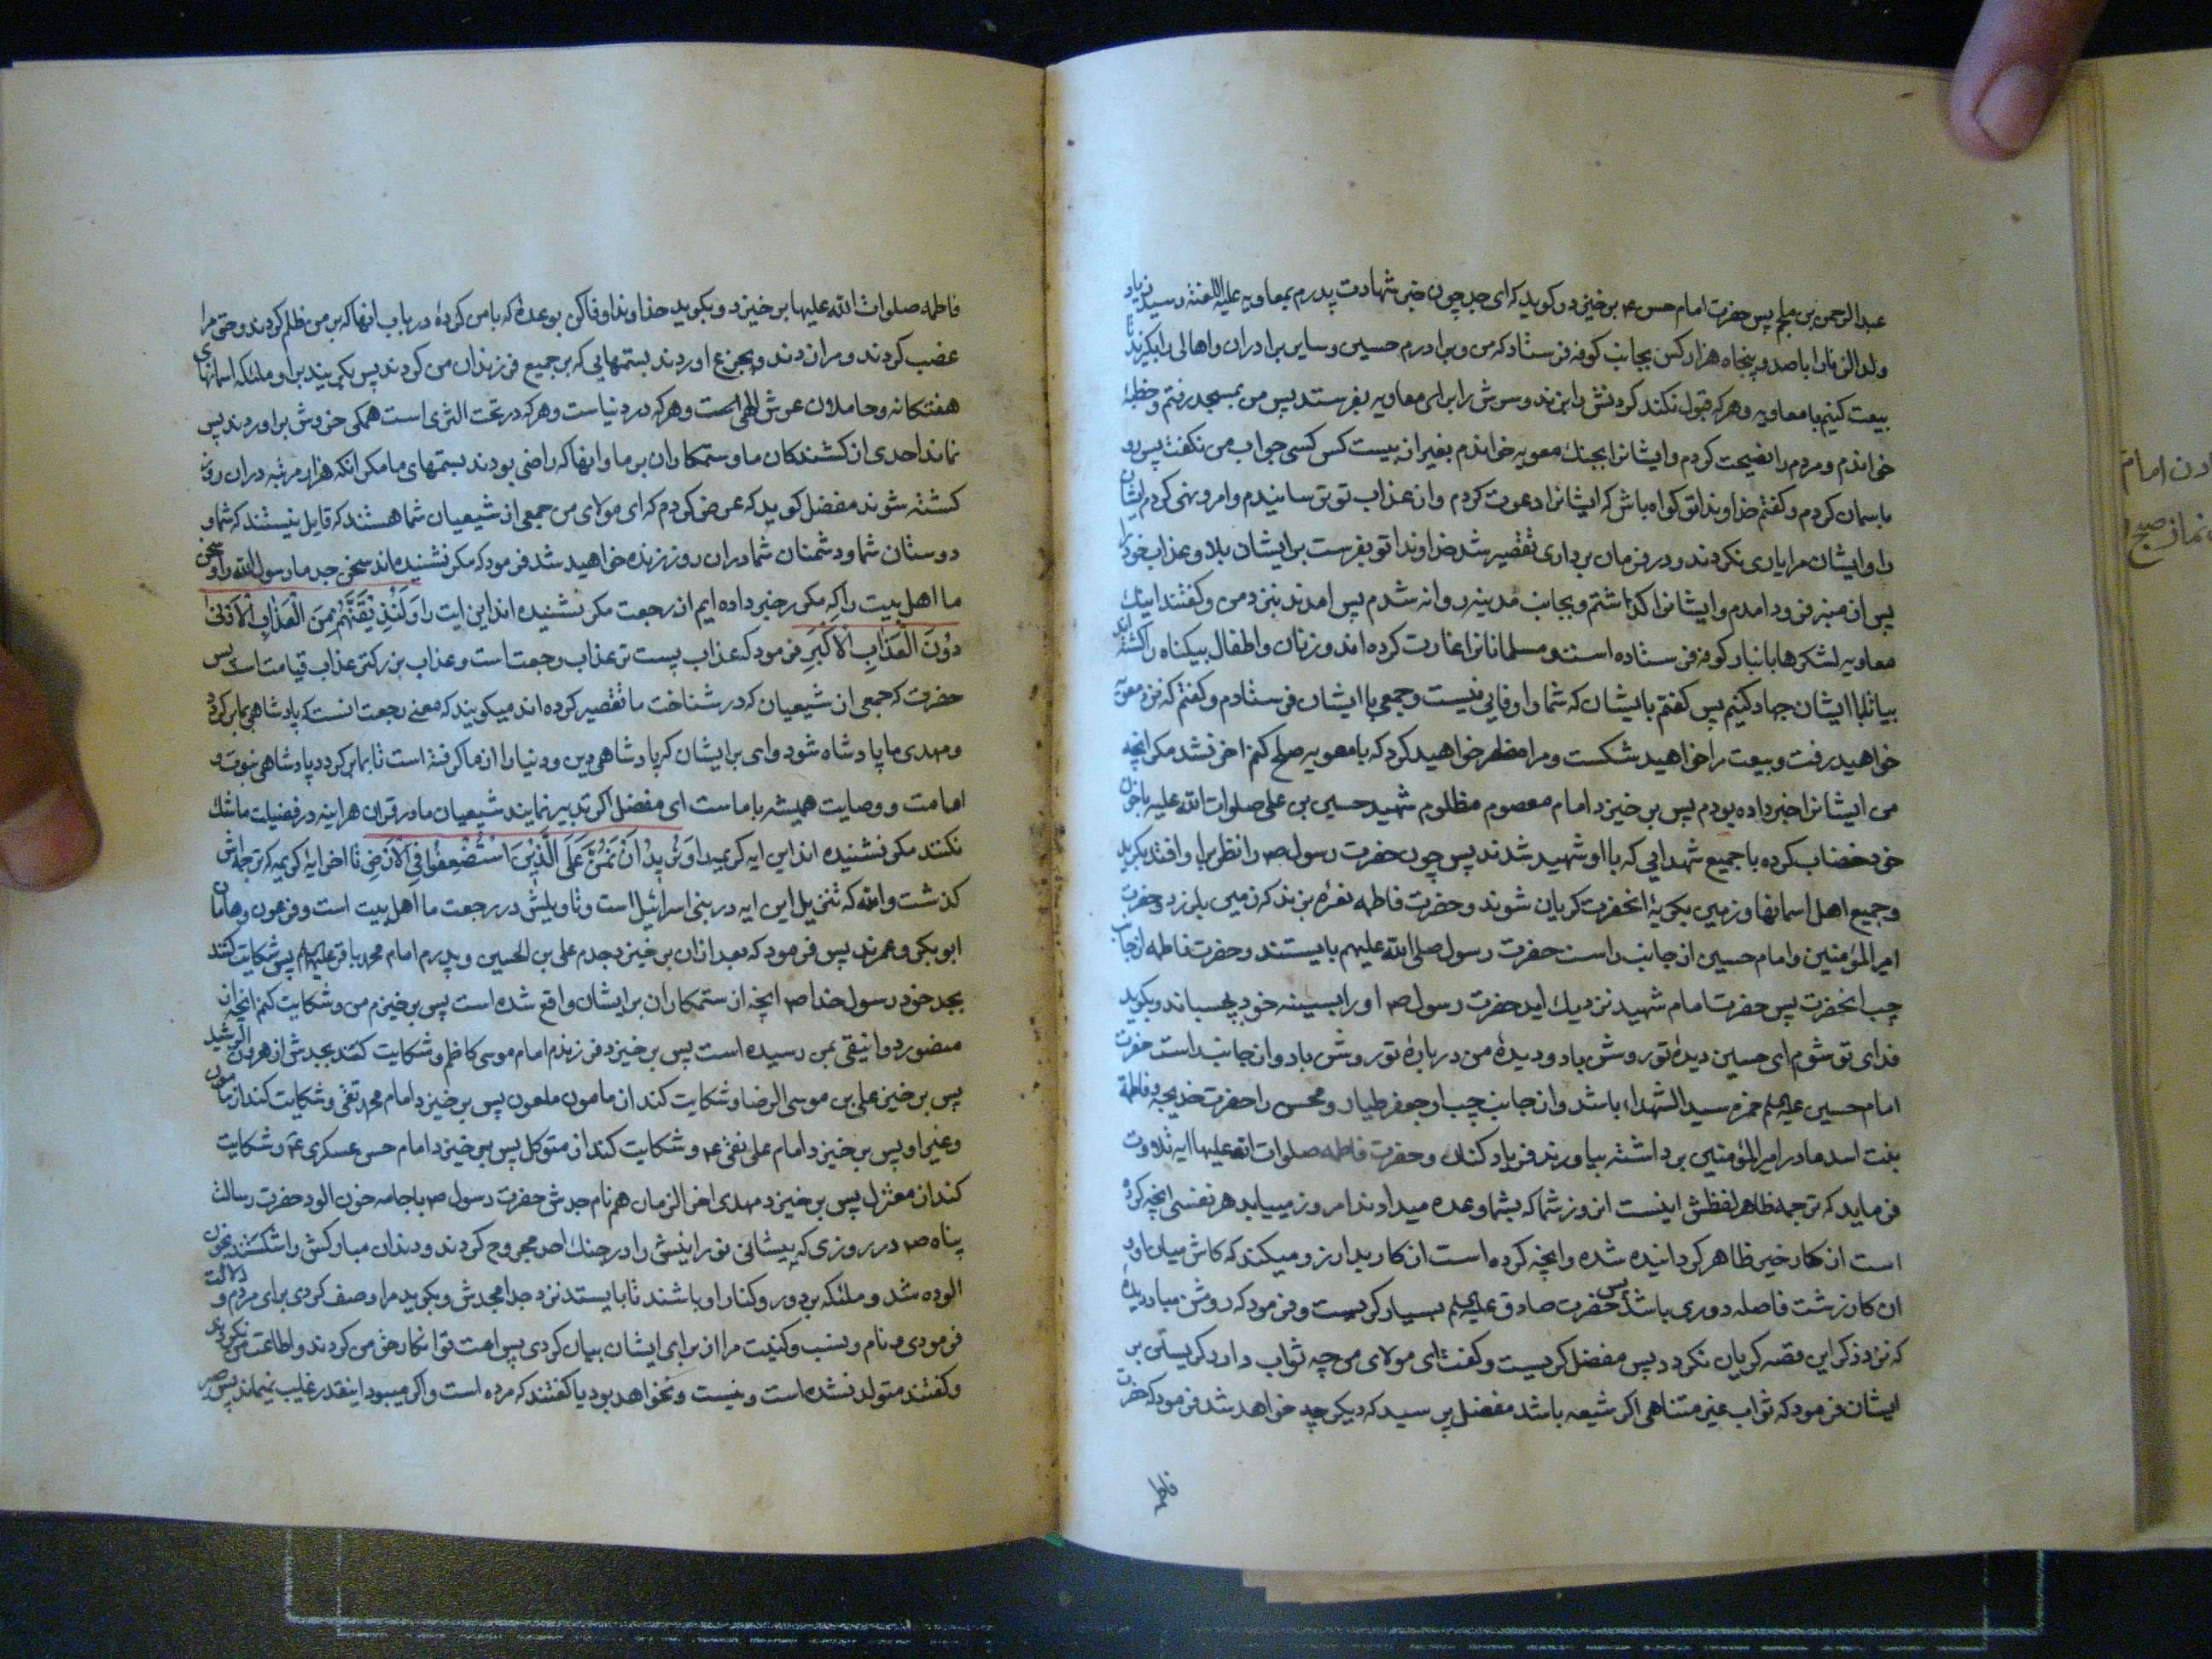 عبدالرحمن بن ملجم پس حضرت امام حسن ع برخیزد و کوید که ای جد چون خبر شهادت پدرم بمعاویه علیه اللعنة رسید زیاد
ولد الزنا را با صد و پنجاه هزار کس بجانب کوفه فرستاد که من و برادرم حسین و سایر برادران و اهالی را بکیرند تا
بیعت کنیم با معاویه و هرکه قبول نکند کردنش را بزند و سرش را برای معاویه بفرستد پس من بمسجد رفتم و خطبهٔ
خواندم و مردم را نصیحت کردم و ایشانرا بجنك معویه خواندم بغیر از بیست کس کسی جواب من نکفت پس رو
باسمان کردم و کفتم خداوندا تو کواه باش که ایشانرا دعوت کردم و از عذاب تو ترسانیدم و امر و نهی کردم ایشان
را و ایشان مرا یاری نکردند و در فرمان برداری تقصیر شد خداوندا تو بفرست بر ایشان بلا و عذاب خود را
پس از منبر فرود امدم و ایشانرا کذاشتم و بجانب مدینه روانه شدم پس امدند بنزد من و کفتند اینك
معاویه لشکرها بانبار و کوفه فرستاده است و مسلمانانرا غارت کرده اند و زنان و اطفال بیکناه را کشته اند
بیا تا با ایشان جهاد کنیم پس کفتم بایشان که شما را وفایی نیست و جمعی با ایشان فرستادم و کفتم که نزد معویه
خواهید رفت و بیعت مرا خواهید شکست و مرا مضطر خواهید کرد که با معویه صلح کنم اخر نشد مکر انچه
من ایشانرا خبر داده بودم پس برخیزد امام معصوم مظلوم شهید حسین بن علی صلوات الله علیه با خون
خود خضاب کرده با جمیع شهدایی که با او شهید شدند پس چون حضرت رسول ص را نظر بر او افتد بکرید
و جمیع اهل اسمانها و زمین بکریهٔ انحضرت کریان شوند و حضرت فاطمه نعرهٔ بزند که زمین بلرزد و حضرت
امیر المؤمنین و امام حسین از جانب راست حضرت رسول صلی الله علیهم بایستند و حضرت فاطمه از جانب
چب انحضرت پس حضرت امام شهید نزدیك اید حضرت رسول ص او را بسینه خود بچسباند و بکوید
فدای تو شوم ای حسین دیدهٔ تو روشن باد و دیدهٔ من در بارهٔ تو روشن باد و از جانب راست حضرت
امام حسین علیه السلم حمزه سید الشهداء باشد و از جانب چب او جعفر طیار و محسن را حضرت خدیجه و فاطمه
بنت اسد مادر امیر المؤمنین برداشته بیاورند فریاد کنان و حضرت فاطمه صلوات الله علیها ایه تلاوت
فرماید که ترجمه ظاهر لفظش اینست انروز شما که بشما وعده میدادند امروز مییابد هر نفسی انچه کرده
است از کار خیر ظاهر کردانیده شده و انچه کرده است از کار بد ارزو میکند که کاش میان او و
ان کار زشت فاصله دوری باشد پس حضرت صادق علیه السلم بسیار کریست و فرمود که روشن مباد دیدهٔ
که نزد ذکر این قصه کریان نکردد پس مفضل کریست و کفت ای مولای من چه ثواب دارد کریستن بر
ایشان فرمود که ثواب غیر متناهی اکر شیعه باشد مفضل پرسید که دیکر چه خواهد شد فرمود که حضرت
فاطمه
فاطمه صلوات الله علیها برخیزد و بکوید خداوندا وفا کن بوعدهٔ که با من کردهٔ در باب انها که بر من ظلم کردند و حق مرا
غصب کردند و مرا زدند و بجزع اوردند بستمهایی که بر جمیع فرزندان من کردند پس بکریند بر او ملئکه اسمانهای
هفتکانه و حاملان عرش الهی است و هرکه در دنیاست و هرکه در تحت الثری است همکی خروش براورند پس
نماند احدی از کشندکان ما و ستمکاران بر ما و انها که راضی بودند بستمهای ما مکر انکه هزار مرتبه در ان روز
کشته شوند مفضل کوید که عرض کردم که ای مولای من جمعی از شیعیان شما هستند که قایل نیستند که شما و
دوستان شما و دشمنان شما دران روز زنده خواهید شد فرمود که مکر نشنیده اند سخن جد ما رسول الله را و سخن
ما اهل بیت را که مکرر خبر داده ایم از رجعت مکر نشنیده اند این ایت را وَلَنُذِيقَنَّهُمْ مِنَ الْعَذَابِ الْأَدْنَىٰ
دُونَ الْعَذَابِ الْأَكْبَرِ فرمود که عذاب پست تر عذاب رجعت است و عذاب بزرکتر عذاب قیامت است پس
حضرت که جمعی از شیعیان که در شناخت ما تقصیر کرده اند میکویند که معنی رجعت انست که پادشاهی بما برکردد
و مهدی ما پادشاه شود وای بر ایشان که پادشاهی دین و دنیا را از ما کرفته است تا بما برکردد پادشاهی نبوت و
امامت و وصایت همیشه با ماست ای مفضل اکر تدبیر نمایند شیعیان ما در قران هراینه در فضیلت ما شك
نکنند مکر نشنیده اند این ایه کریمه را وَنُرِيدُ اَنْ نَمُنَّ عَلَى الَّذِينَ اسْتُضْعِفُوا فِي الْاَرْضِ تا اخر ایهٔ کریمه که ترجمه اش
کذشت والله که تنزیل این ایه در بنی اسرائیل است و تاویلش در رجعت ما اهل بیت است و فرعون و هامان
ابوبکر و عمرند پس فرمود که بعد ازان برخیزد جدم علی بن الحسین و پدرم امام محمد باقر علیهم السلم پس شکایت کنند
بجد خود رسول خدا ص انچه از ستمکاران بر ایشان واقع شده است پس برخیزم من و شکایت کنم انچه از
منصور دوانیقی بمن رسیده است پس برخیزد فرزندم امام موسی کاظم و شکایت کند بجدش از هرون الرشید
پس برخیزد علی بن موسی الرضا و شکایت کند از مامون ملعون پس برخیزد امام محمد تقی و شکایت کند از مامون
و غیر او پس برخیزد امام علی نقی ع و شکایت کند از متوکل پس برخیزد امام حسن عسکری ع و شکایت
کند از معتزل پس برخیزد مهدی اخر الزمان هم نام جدش حضرت رسول ص با جامه خون الود حضرت رسالت
پناه ص در روزی که پیشانی نورانیش را در جنك احد مجروح کردند و دندان مبارکش را شکستند بخون
الوده شد و ملئکه بر دور و کنار او باشند تا بایستد نزد جد امجدش و بکوید مرا وصف کردی برای مردم و دلالت
فرمودی و نام و نسب و کنیت مرا از برای ایشان بیان کردی پس امت تو انکار حق من کردند و اطاعت من نکردند
و کفتند متولد نشده است و نیست و نخواهد بود یا کفتند که مرده است و اکر میبود اینقدر غایب نمیماند پس